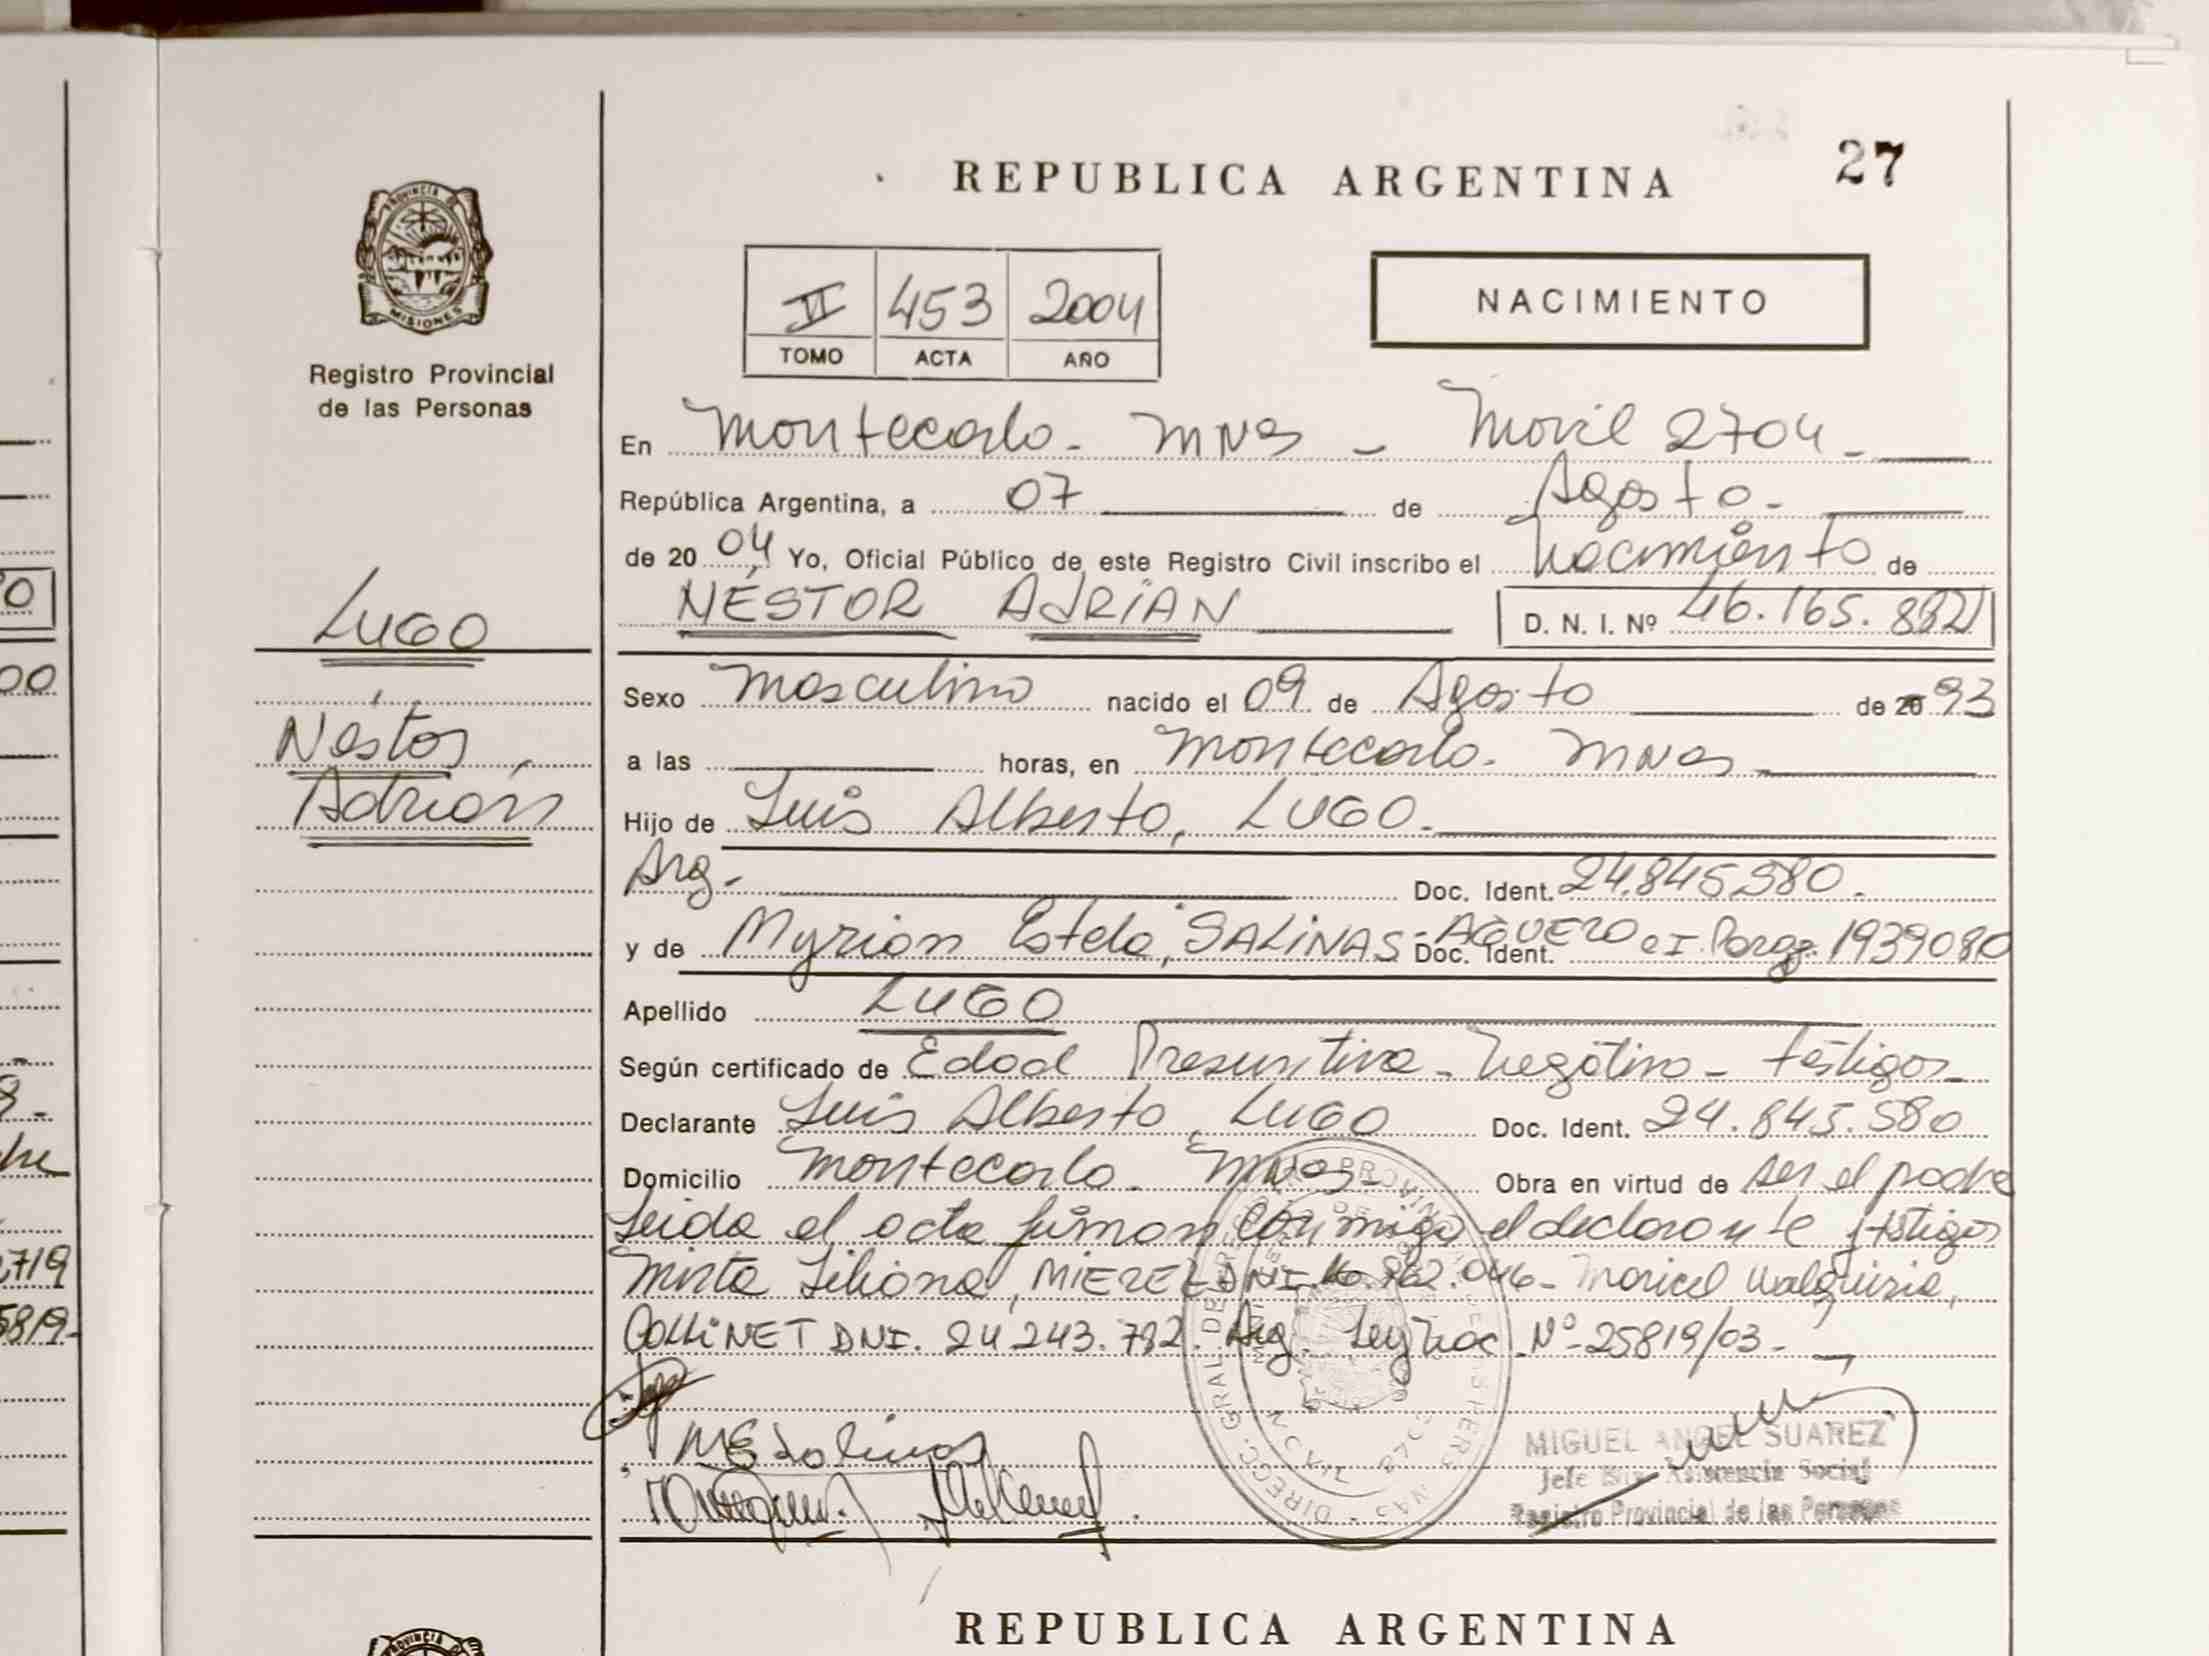 27
REPUBLICA ARGENTINA
PROVINCIA D
MISIONES
Registro Provincial
de las Personas
II 453 2004
TOMO ACTA AÑO
NACIMIENTO
En Montecarlo - Mnes - Movil 2704 -
República Argentina, a 07 de Agosto -
de 20 04 Yo, Oficial Público de este Registro Civil inscribo el Nacimiento de
NÉSTOR ADRIÁN D. N. I. Nº 46.165.882
LUGO
Néstor
Adrián
Sexo Masculino nacido el 09 de Agosto de 20 93
a las horas, en Montecarlo - Mnes -
Hijo de Luis Alberto, LUGO -
Arg - Doc. Ident. 24.845.580 -
y de Myrian Estela, SALINAS - AGUERO Doc. Ident. CI. Parag. 1939080
Apellido LUGO
Según certificado de Edad Presuntiva - Negativo - Testigos -
Declarante Luis Alberto, LUGO Doc. Ident. 24.845.580
Domicilio Montecarlo - Mnes - Obra en virtud de ser el padre
Leida el acta firman conmigo el declarante y testigos
Mirta Liliana, MIEREZ DNI. 16.962.046 - Maricel Walquiria,
COLLINET DNI. 24.243.792. Arg. Ley Nac. Nº 25819/03 -
MESalinas
MIGUEL ANGEL SUAREZ
Jefe Asistencia Social
Registro Provincial de las Personas
00
2719
5819 -
PROVINCIA
REPUBLICA ARGENTINA